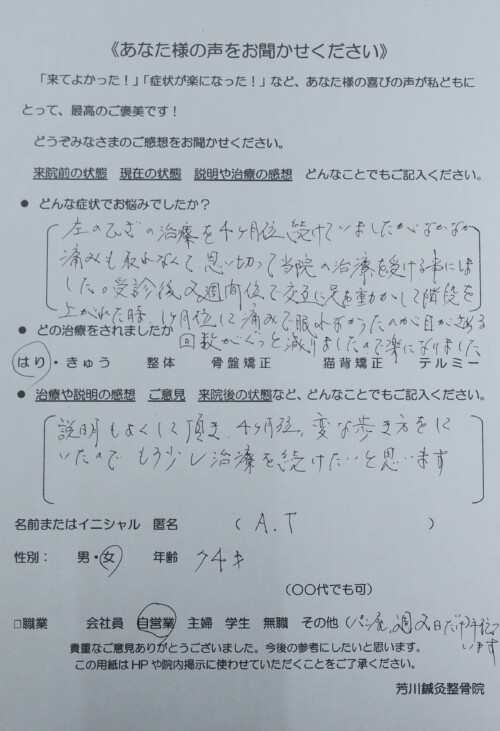 《あなた様の声をお聞かせください》
「来てよかった！」「症状が楽になった！」など、あなた様の喜びの声が私どもに
とって、最高のご褒美です！
どうぞみなさまのご感想をお聞かせください。
来院前の状態　現在の状態　説明や治療の感想　どんなことでもご記入ください。
● どんな症状でお悩みでしたか？
左のひざの治療を4ヶ月位続けていましたがなかなか
痛みも取れなくて思い切って当院の治療を受ける事にしま
した。受診後2週間位で交互に足を動かして階段を
上がれた時、1ヶ月位して痛みで眠れなかったのが目がさめる
● どの治療をされましたか
回数がぐっと減りましたので楽になりました
はり・きゅう　整体　骨盤矯正　猫背矯正　テルミー
● 治療や説明の感想　ご意見　来院後の状態など、どんなことでもご記入ください。
説明もよくして頂き、4ヶ月位、変な歩き方をして
いたのでもう少し治療を続けたいと思います
名前またはイニシャル　匿名　（ A.T ）
性別：　男・女　年齢
（〇〇代でも可）
□職業　会社員　自営業　主婦　学生　無職　その他（パン屋、週2日だけ
います
貴重なご意見ありがとうございました。今後の参考にしたいと思います。
この用紙はＨＰや院内掲示に使わせていただくことをご了承ください。
芳川鍼灸整骨院